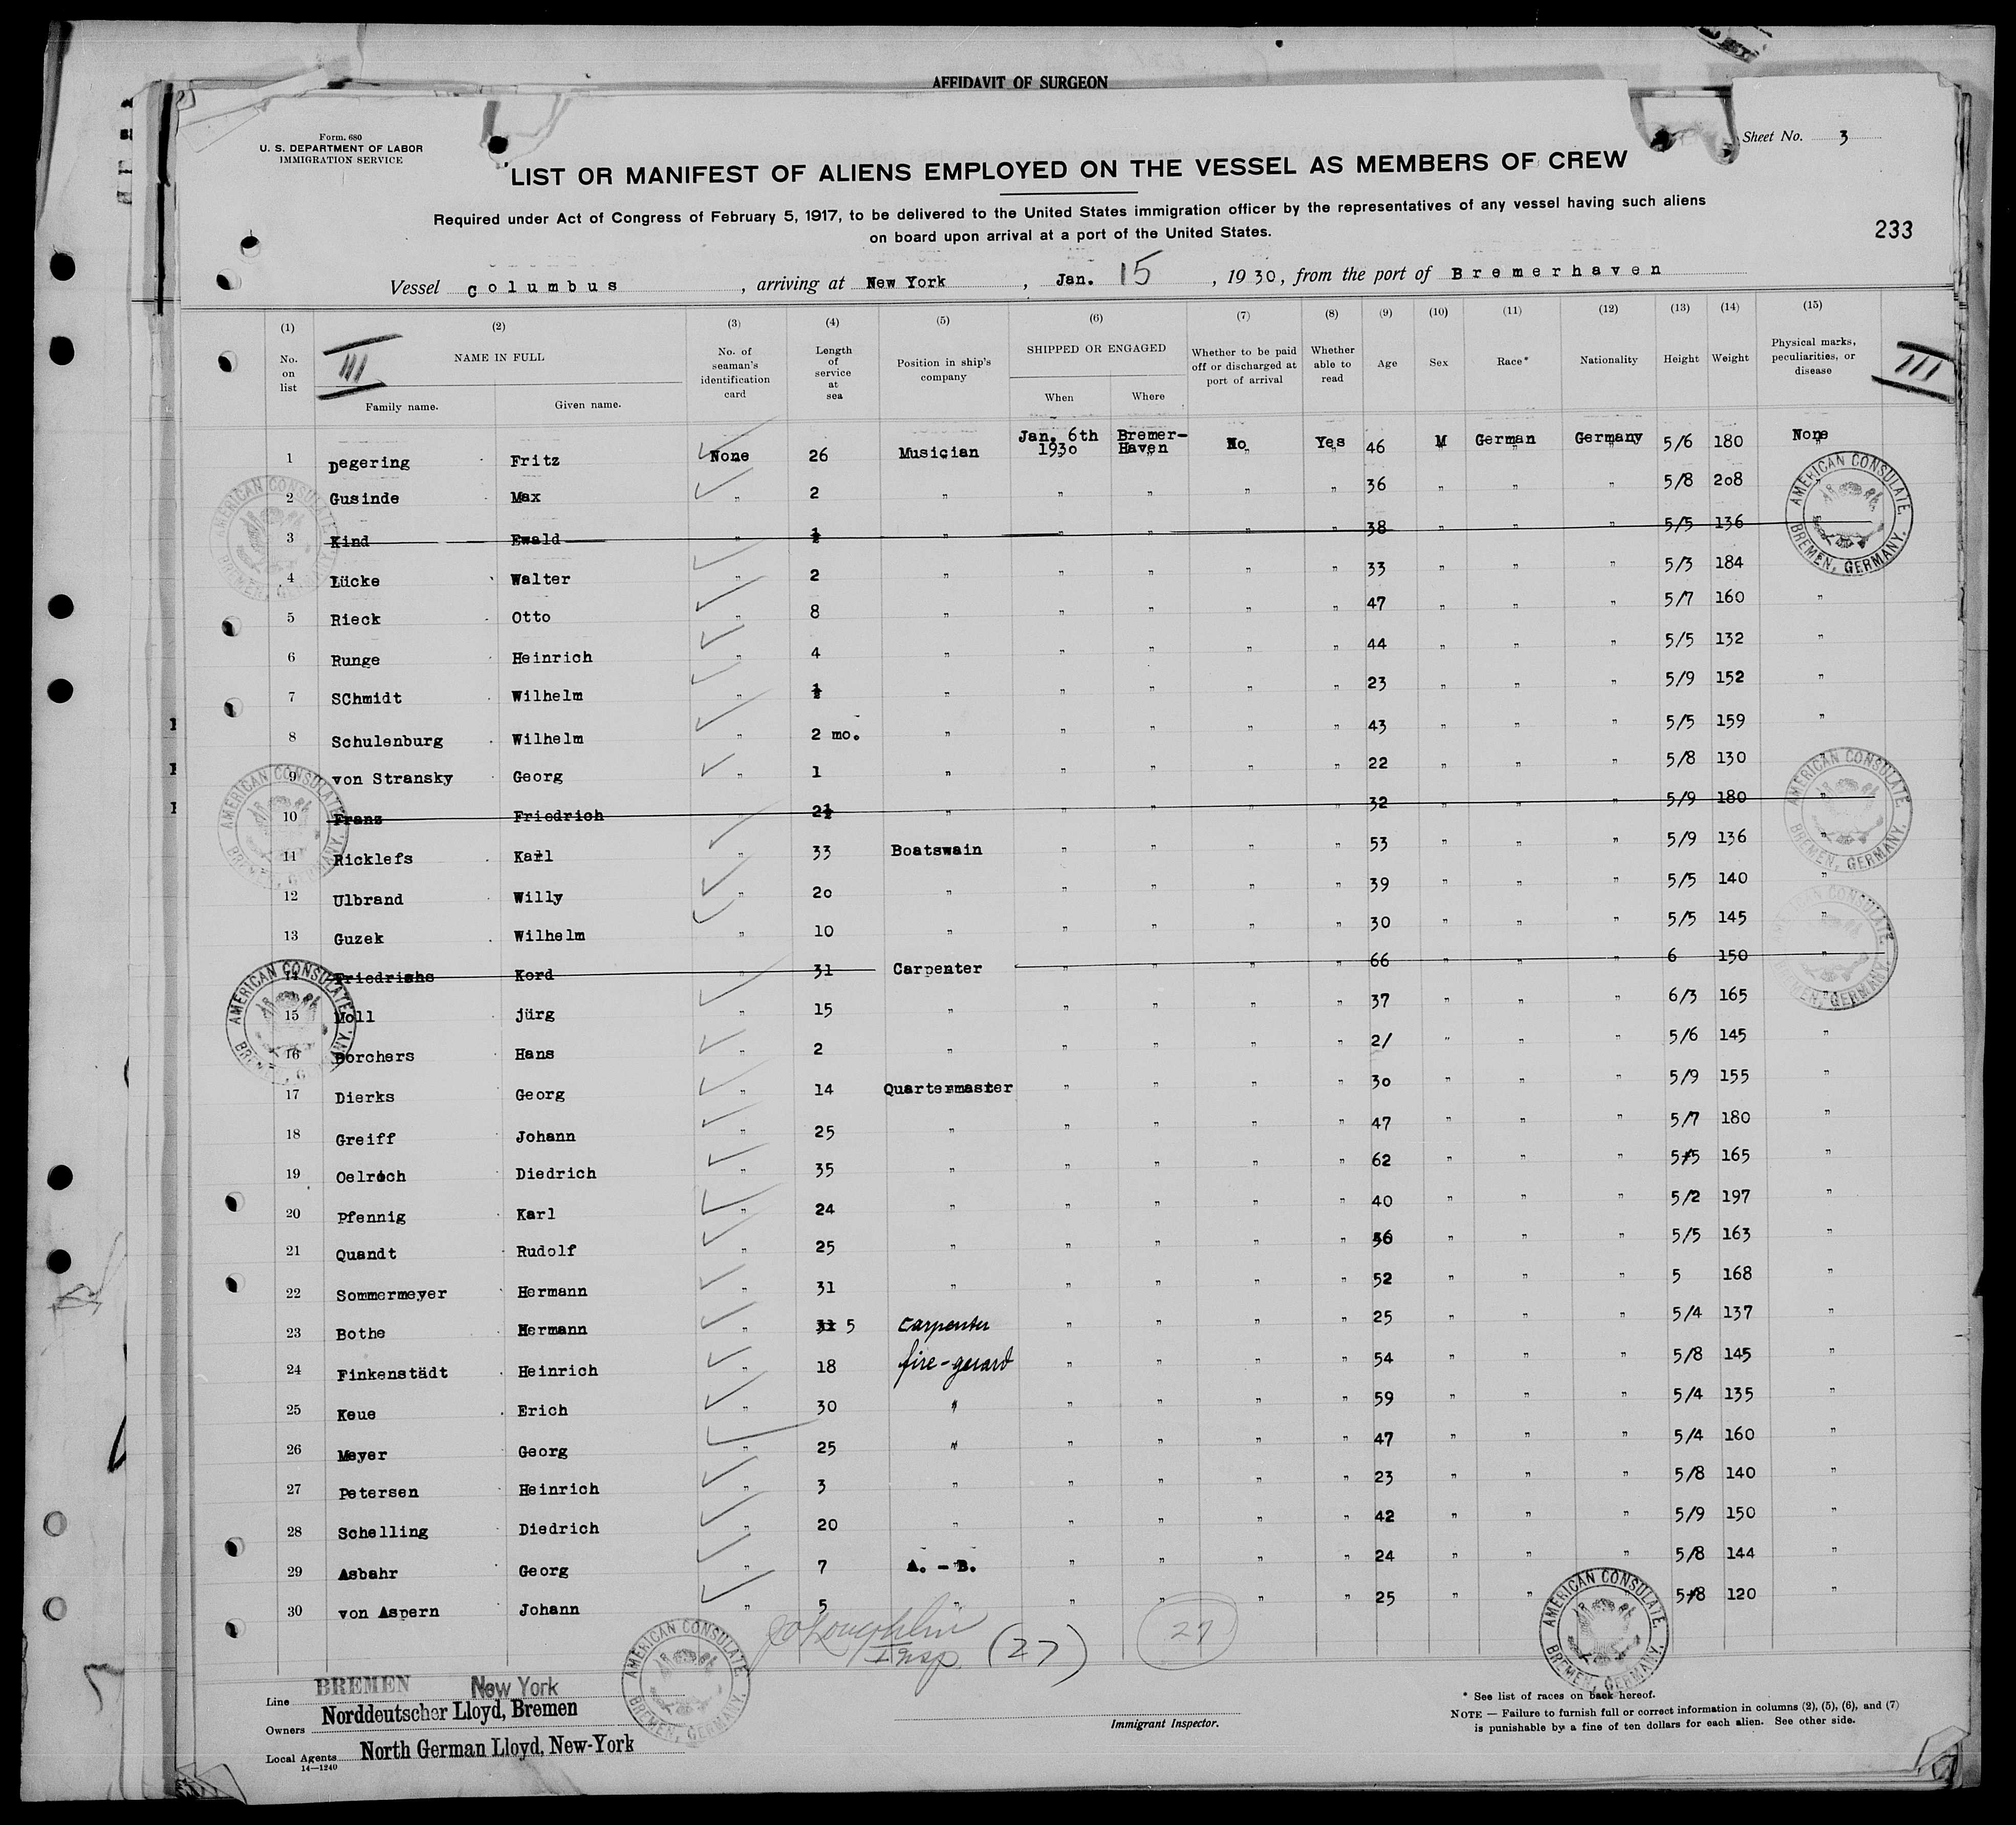 AFFIDAVIT OF SURGEON
Form. 680
U. S. DEPARTMENT OF LABOR
IMMIGRATION SERVICE
Sheet No. 3
LIST OR MANIFEST OF ALIENS EMPLOYED ON THE VESSEL AS MEMBERS OF CREW
Required under Act of Congress of February 5, 1917, to be delivered to the United States immigration officer by the representatives of any vessel having such aliens
on board upon arrival at a port of the United States.
233
Vessel Columbus, arriving at New York, Jan. 15, 1930, from the port of Bremerhaven
(1) (2) (3) (4) (5) (6) (7) (8) (9) (10) (11) (12) (13) (14) (15)
No. on list NAME IN FULL Family name. Given name. No. of seaman's identification card Length of service at sea Position in ship's company SHIPPED OR ENGAGED When Where Whether to be paid off or discharged at port of arrival Whether able to read Age Sex Race* Nationality Height Weight Physical marks, peculiarities, or disease
III III
1 Degering Fritz None 26 Musician Jan. 6th 1930 Bremer-Haven No Yes 46 M German Germany 5/6 180 None
2 Gusinde Max " 2 " " " " " 36 " " " 5/8 208
3 Kind Ewald " ½ " " " " " 38 " " " 5/5 136
4 Lücke Walter " 2 " " " " " 33 " " " 5/3 184 "
5 Rieck Otto " 8 " " " " " 47 " " " 5/7 160 "
6 Runge Heinrich " 4 " " " " " 44 " " " 5/5 132 "
7 SChmidt Wilhelm " ½ " " " " " 23 " " " 5/9 152 "
8 Schulenburg Wilhelm " 2 mo. " " " " " 43 " " " 5/5 159 "
9 von Stransky Georg " 1 " " " " " 22 " " " 5/8 130 "
10 Franz Friedrich " 2½ " " " " " 32 " " " 5/9 180 "
11 Ricklefs Karl " 33 Boatswain " " " " 53 " " " 5/9 136 "
12 Ulbrand Willy " 20 " " " " " 39 " " " 5/5 140 "
13 Guzek Wilhelm " 10 " " " " " 30 " " " 5/5 145 "
14 Friedrichs Kord " 31 Carpenter " " " " 66 " " " 6 150 "
15 Moll jürg " 15 " " " " " 37 " " " 6/3 165 "
16 Borchers Hans " 2 " " " " " 2/ " " " 5/6 145 "
17 Dierks Georg " 14 Quartermaster " " " " 30 " " " 5/9 155 "
18 Greiff Johann " 25 " " " " " 47 " " " 5/7 180 "
19 Oelrich Diedrich " 35 " " " " " 62 " " " 5/5 165 "
20 Pfennig Karl " 24 " " " " " 40 " " " 5/2 197 "
21 Quandt Rudolf " 25 " " " " " 56 " " " 5/5 163 "
22 Sommermeyer Hermann " 31 " " " " " 52 " " " 5 168 "
23 Bothe Hermann " 5 Carpenter " " " " 25 " " " 5/4 137 "
24 Finkenstädt Heinrich " 18 fire-guard " " " " 54 " " " 5/8 145 "
25 Keue Erich " 30 " " " " " 59 " " " 5/4 135 "
26 Meyer Georg " 25 " " " " " 47 " " " 5/4 160 "
27 Petersen Heinrich " 3 " " " " " 23 " " " 5/8 140 "
28 Schelling Diedrich " 20 " " " " " 42 " " " 5/9 150 "
29 Asbahr Georg " 7 A. - B. " " " " 24 " " " 5/8 144 "
30 von Aspern Johann " 5 " " " " " 25 " " " 5/8 120 "
AMERICAN CONSULATE, BREMEN, GERMANY.
AMERICAN CONSULATE, BREMEN, GERMANY.
AMERICAN CONSULATE, BREMEN, GERMANY.
AMERICAN CONSULATE, BREMEN, GERMANY.
AMERICAN CONSULATE, BREMEN, GERMANY.
AMERICAN CONSULATE, BREMEN, GERMANY.
AMERICAN CONSULATE, BREMEN, GERMANY.
AMERICAN CONSULATE, BREMEN, GERMANY.
Insp. (27) 27
Line BREMEN New York
Owners Norddeutscher Lloyd, Bremen
Local Agents North German Lloyd, New-York
14—1240
Immigrant Inspector.
* See list of races on back hereof.
NOTE — Failure to furnish full or correct information in columns (2), (5), (6), and (7)
is punishable by a fine of ten dollars for each alien. See other side.